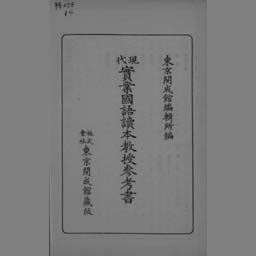 東京開成館編輯所編
現代實業國語讀本教授參考書
株式會社東京開成館藏版